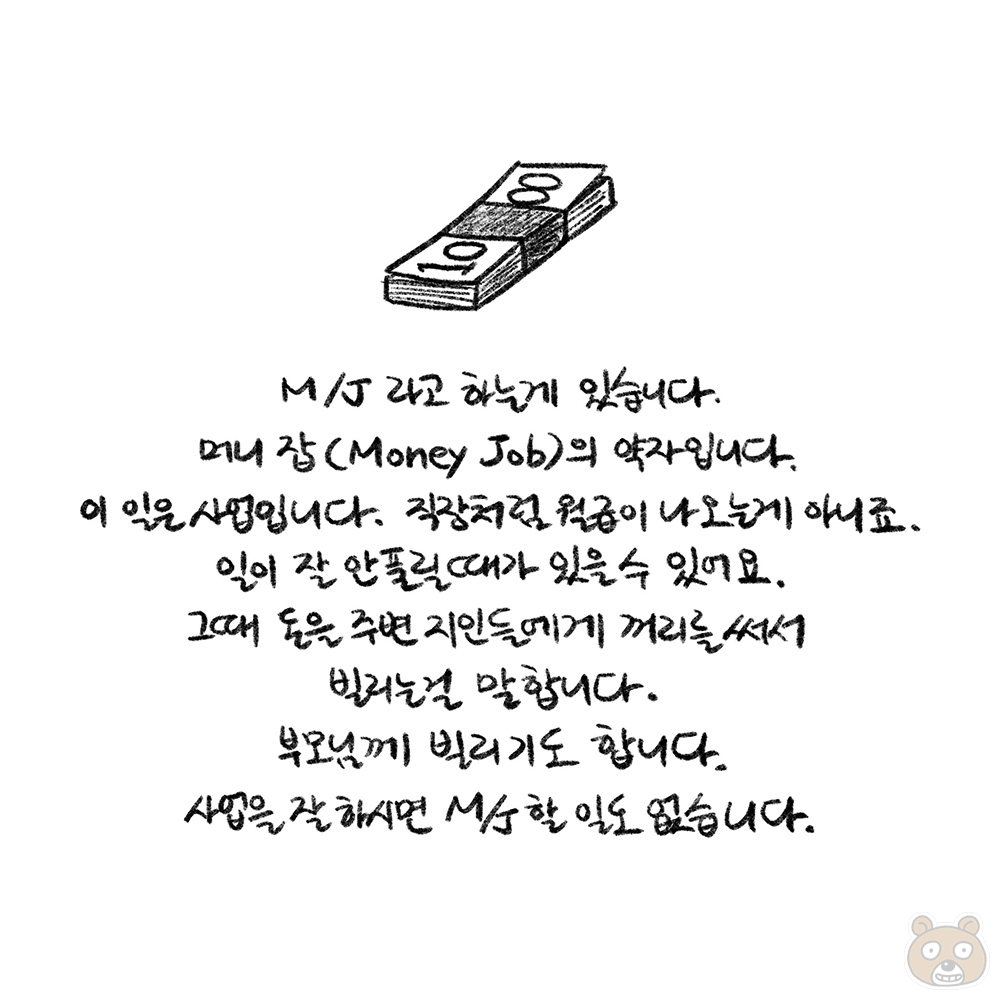 100
M/J 라고 하는게 있습니다.
머니 잡(Money Job)의 약자입니다.
이 일은 사업입니다. 직장처럼 월급이 나오는게 아니죠.
일이 잘 안플릴때가 있을수 있어요.
그때 돈을 주변 지인들에게 꺼리를 써서
빌리는걸 말합니다.
부모님께 빌리기도 합니다.
사업을 잘 하시면 M/J 할 일도 없습니다.